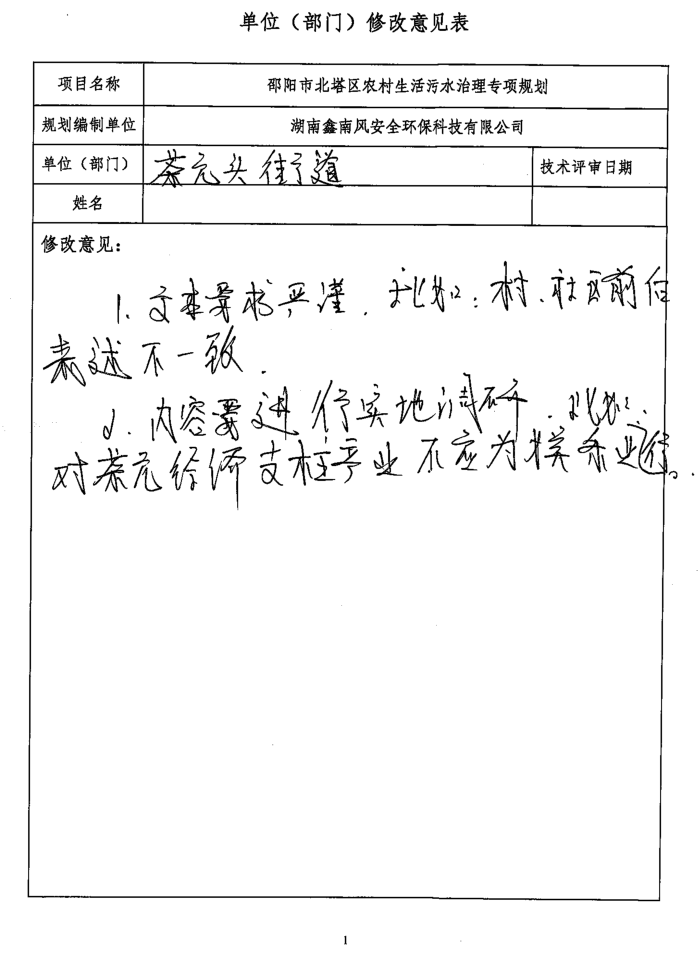 单位（部门）修改意见表
项目名称 邵阳市北塔区农村生活污水治理专项规划
规划编制单位 湖南鑫南风安全环保科技有限公司
单位（部门） 茶元头街道 技术评审日期
姓名
修改意见：
1. 文本要求严谨. 比如：村、社区前后
表述不一致.
2. 内容要进行实地调研. 比如：
对茶元经济支柱产业不应为 行。
1